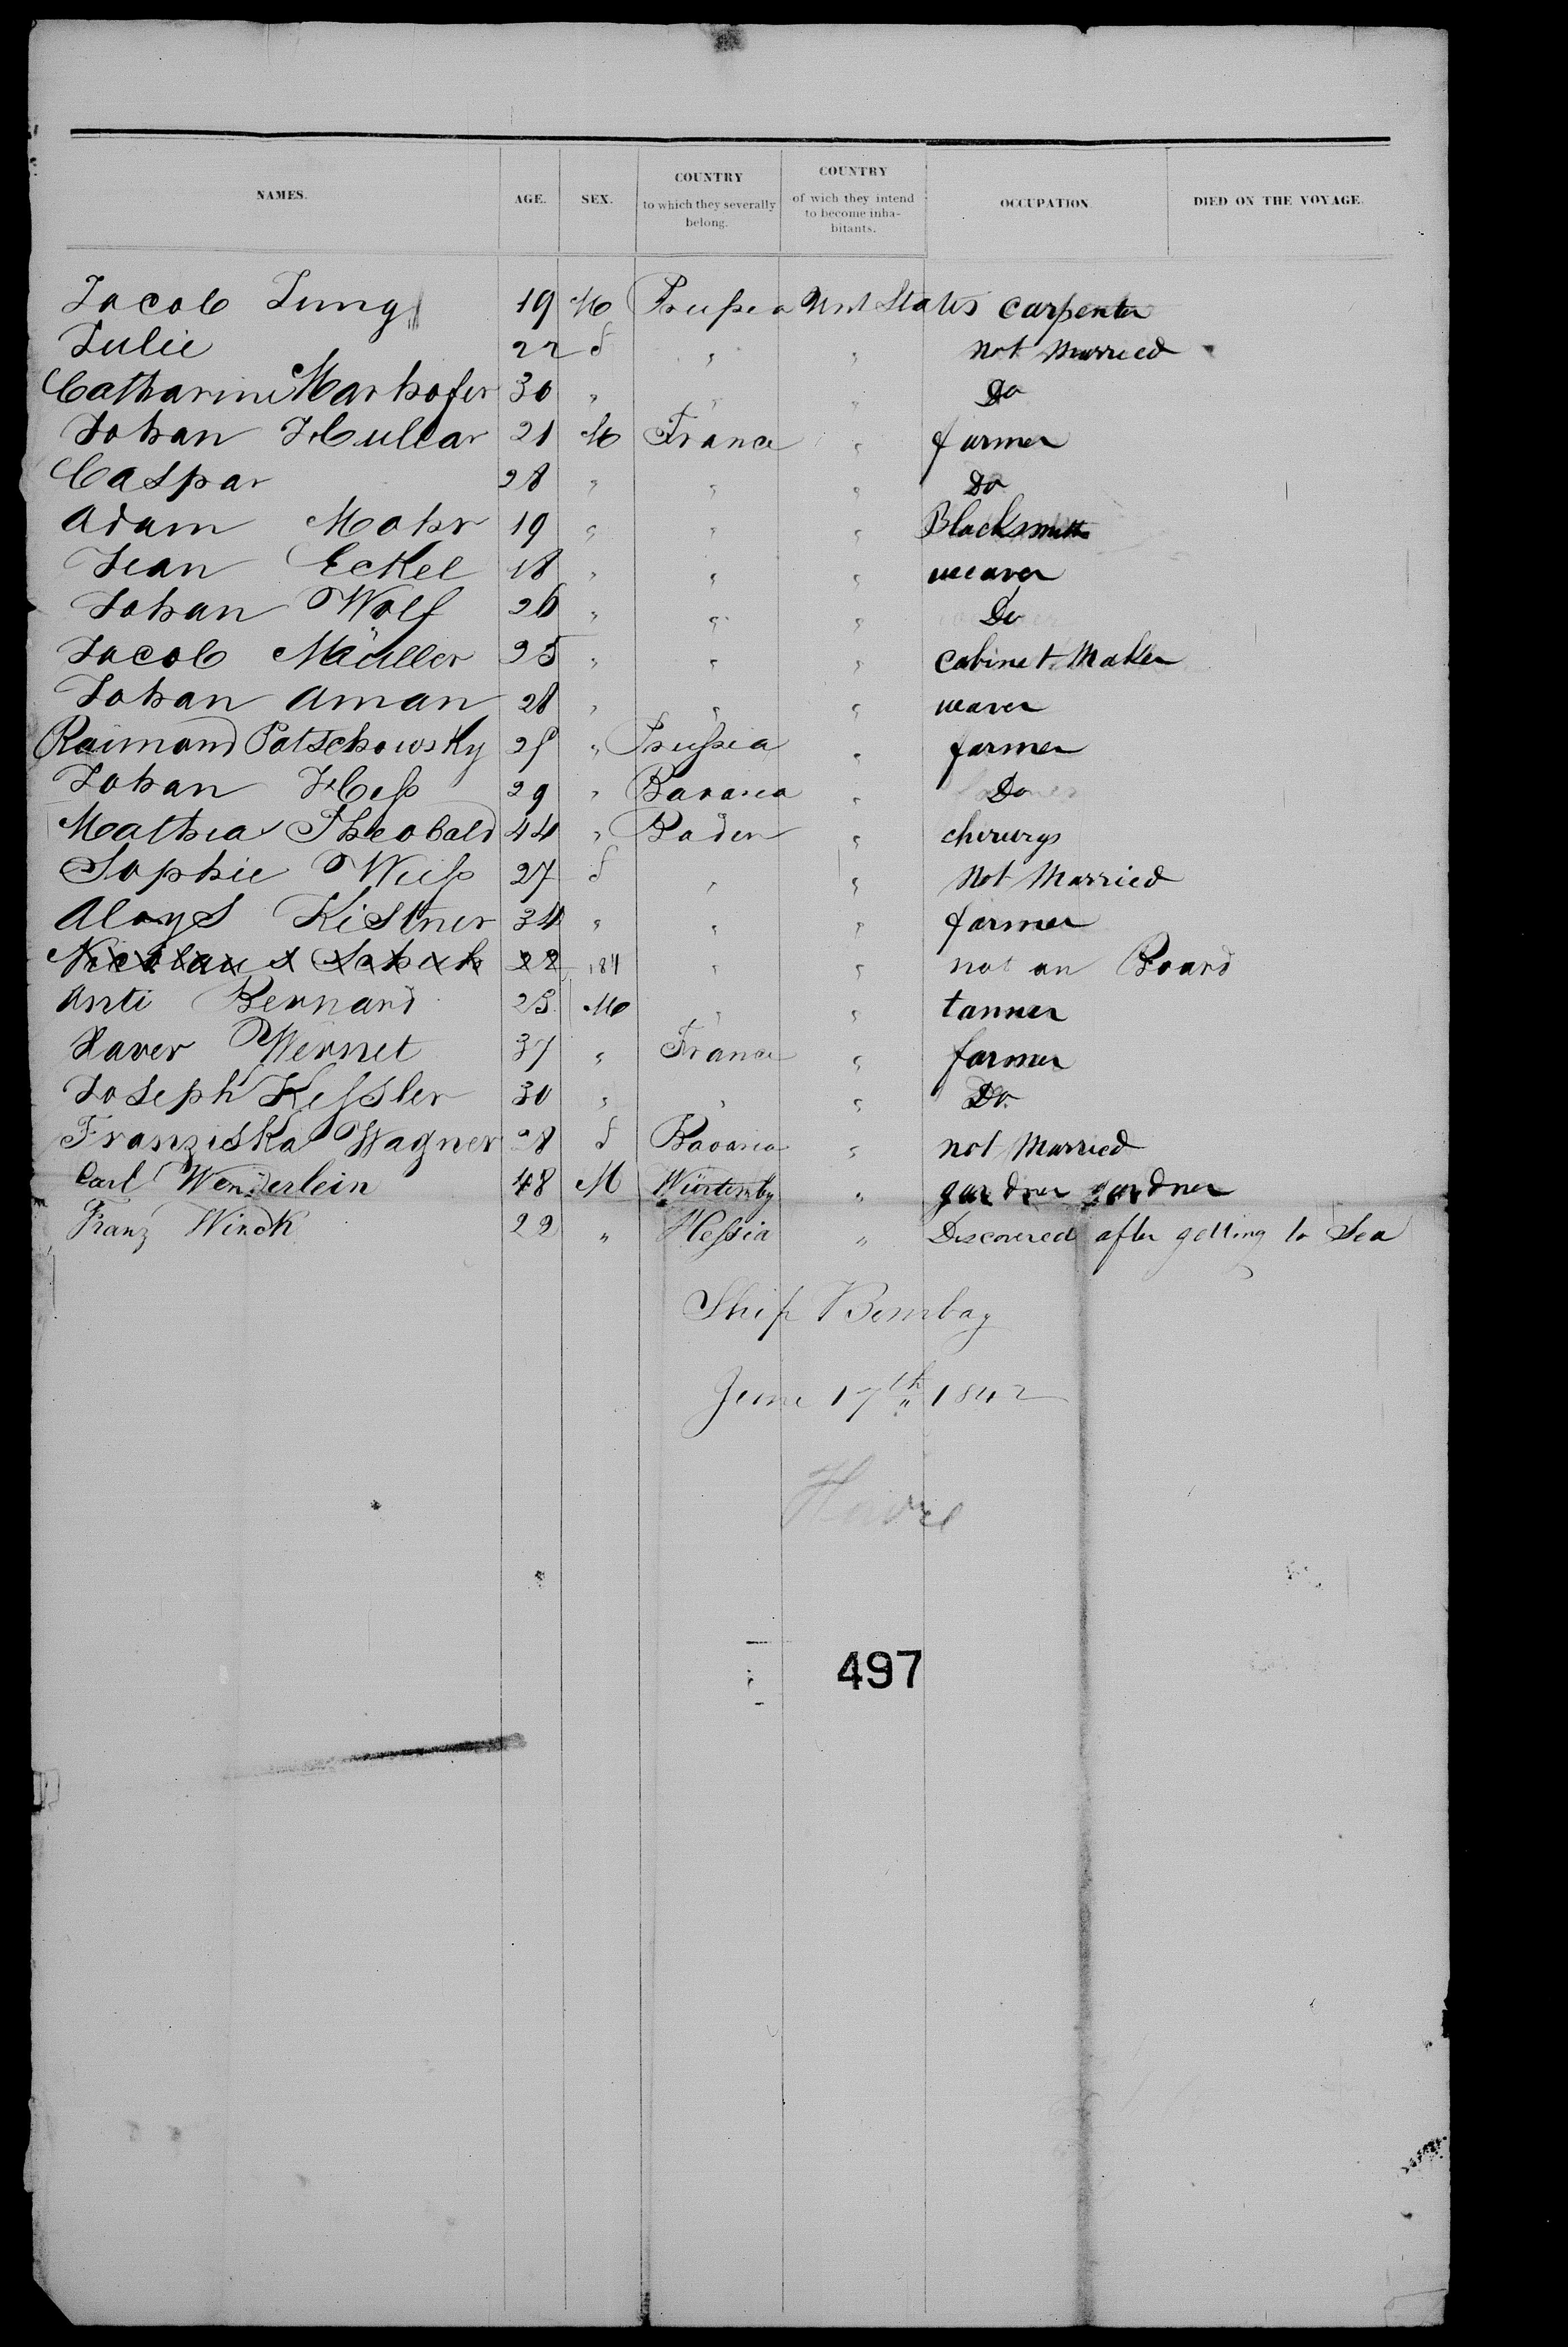 NAMES. AGE. SEX. COUNTRY to which they severally belong. COUNTRY of wich they intend to become inhabitants. OCCUPATION DIED ON THE VOYAGE.
Jacob Jung 19 M Prussia Unt States carpenter
Julie 22 f " " not Married
Catharine Marhofer 30 " " " Do
Johan Hullar 21 M France " farmer
Caspar 28 " " " Do
Adam Mohr 19 " " " Blacksmith
Jean Eckel 18 " " " weaver
Johan Wolf 26 " " " Do
Jacob Müller 25 " " " cabinet Maker
Johan Aman 28 " " " weaver
Raimond Patschowsky 25 " Prussia " farmer
Johan Heß 29 " Bavaria " Do
Mathias Theobald 44 " Baden " chirurgs
Sophie Weiß 27 f " " Not Married
Aloys Kistner 34 " " " farmer
Nicolaus 22 184 " " not on Board
Anti Bernard 25 M " " tanner
Xaver Wernet 37 " France " farmer
Joseph Kessler 30 " " " Do
Franziska Wagner 28 f Bavaria " not Married
Carl Wenderlein 48 M Würtemby " gardner gardner
Franz Winck 22 " Hessia " Discovered after getting to Sea
Ship Bombay
June 17th 1842
Havre
497